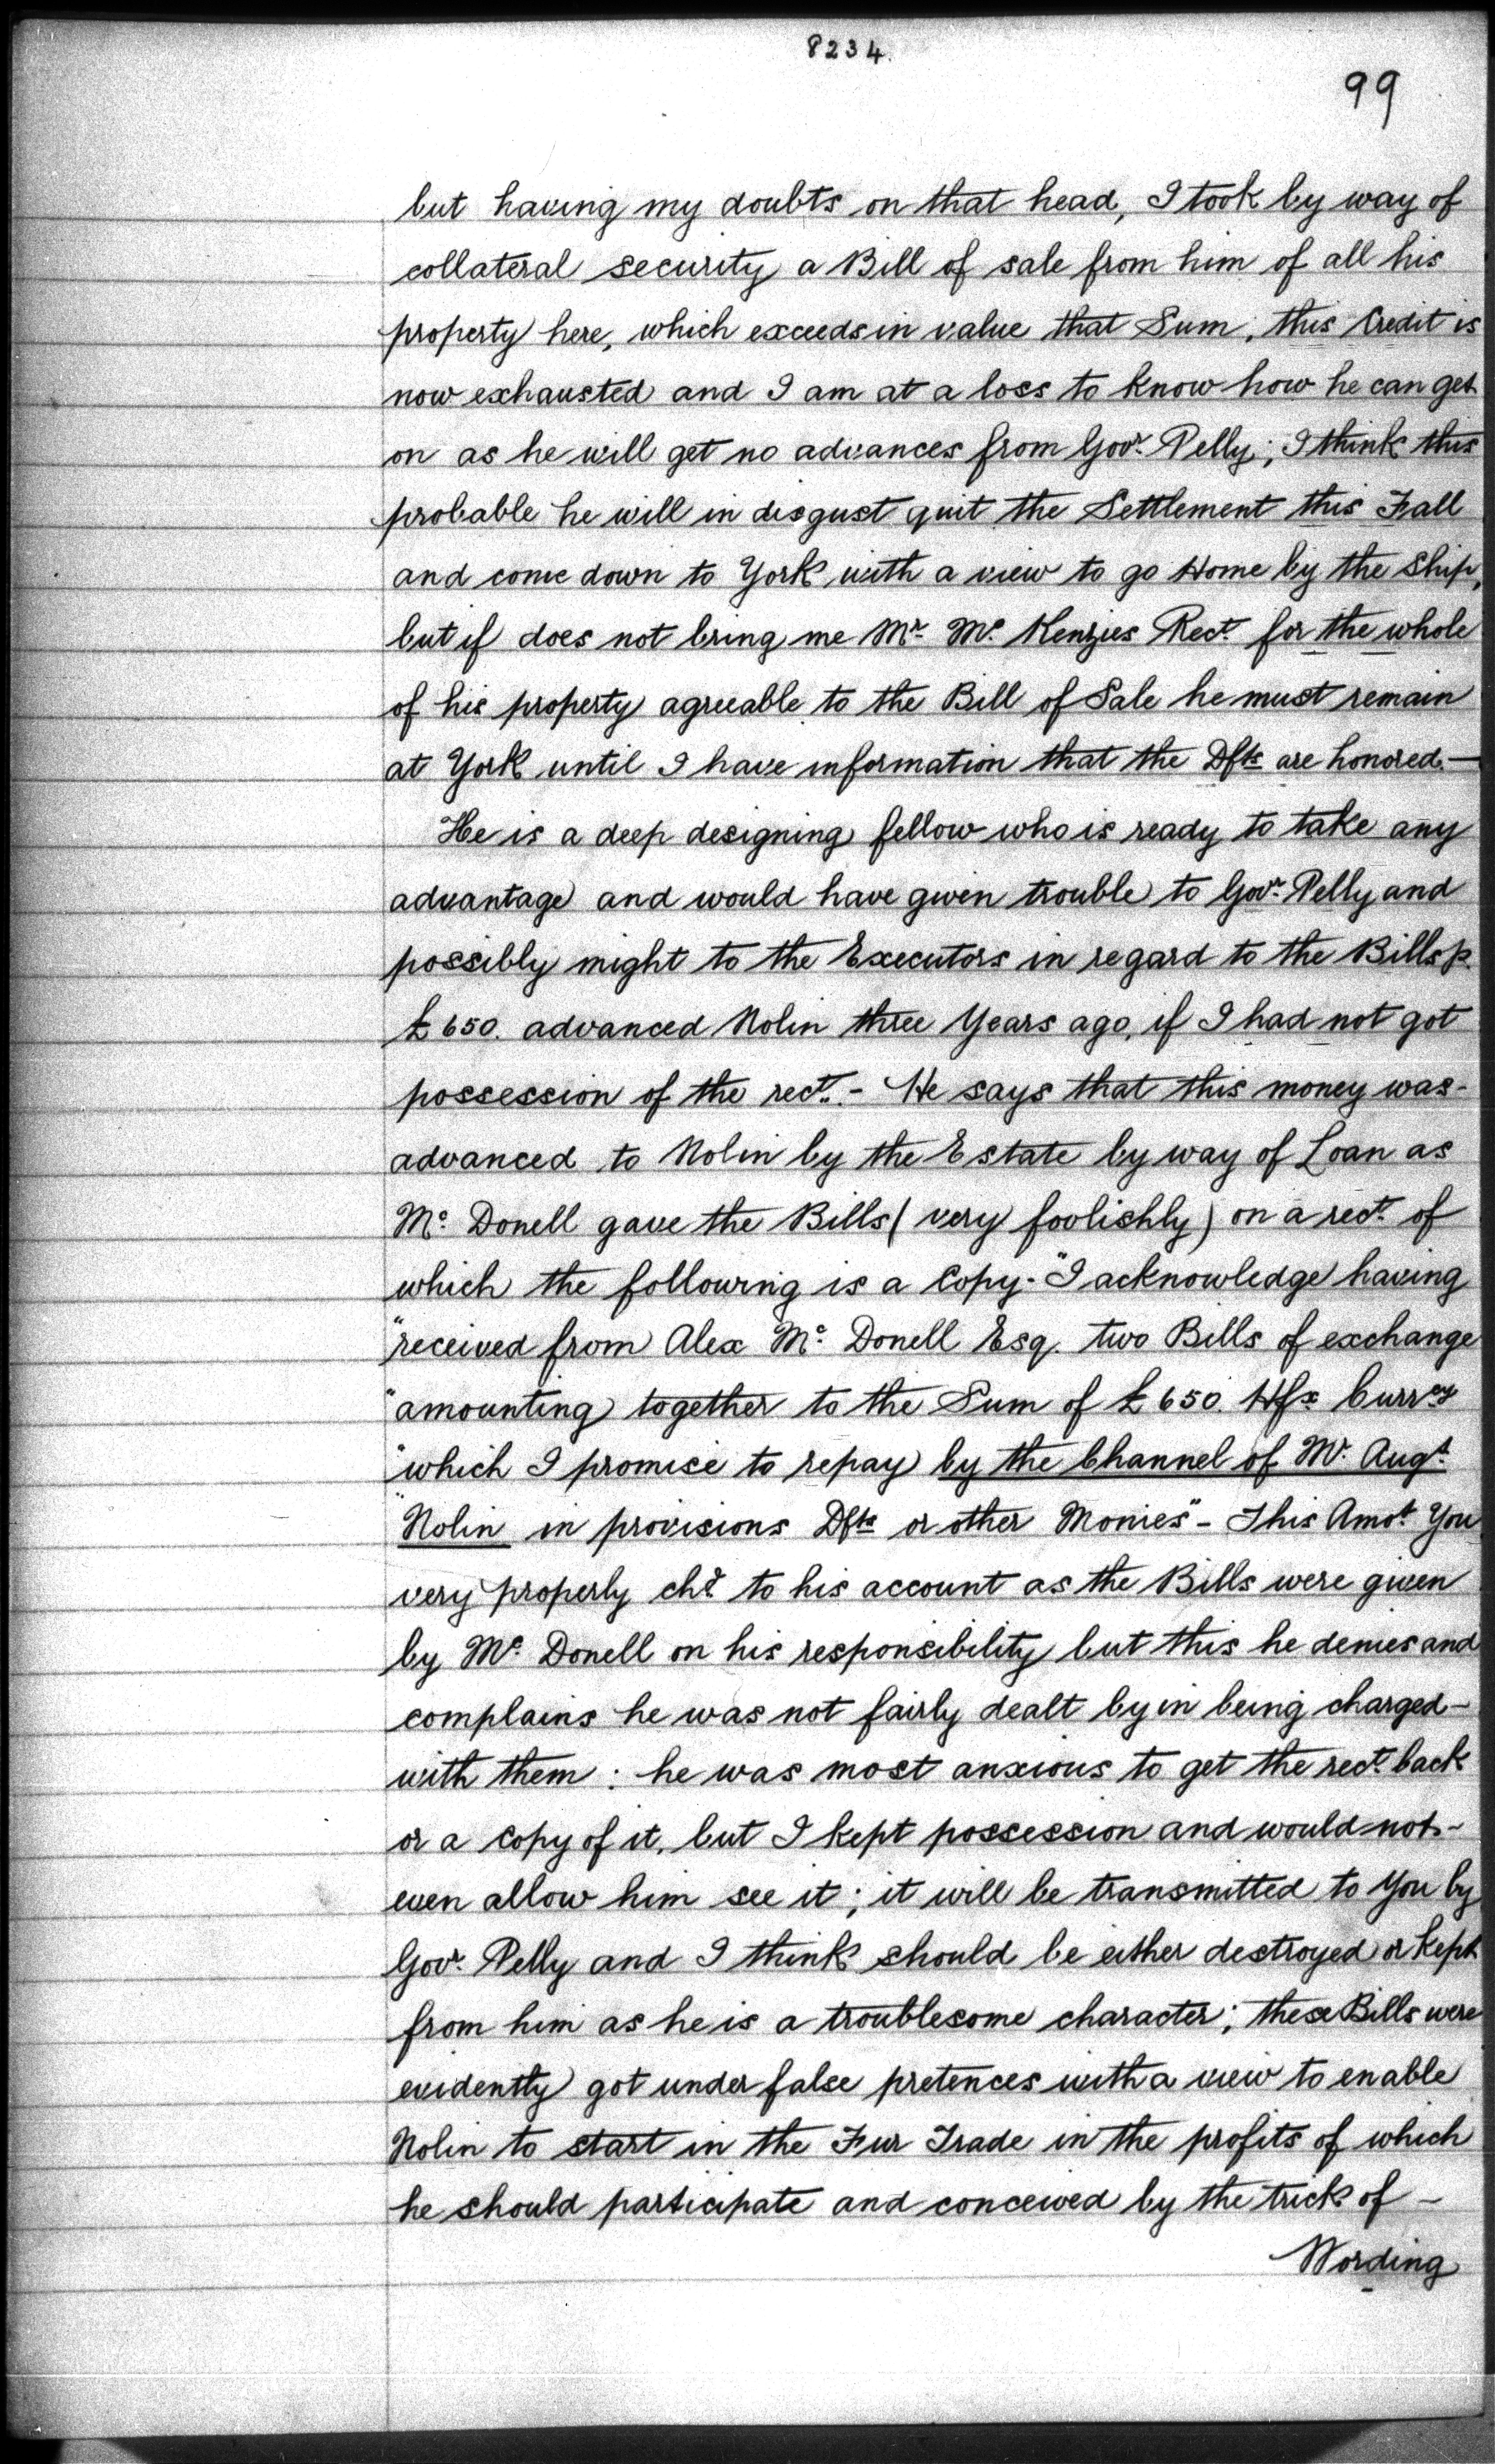 8234.
99
but having my doubts on that head, I took by way of
collateral security a Bill of sale from him of all his
property here, which exceeds in value that Sum, this Credit is
now exhausted and I am at a loss to know how he can get
on as he will get no advances from Govr. Pelly; I think this
probable he will in disgust quit the Settlement this Fall
and come down to York with a view to go Home by the Ship,
but if does not bring me Mr. Mc. Kenzies Rect. for the whole
of his property agreeable to the Bill of Sale he must remain
at York until I have information that the Dfts are honored.—
He is a deep designing fellow who is ready to take any
advantage and would have given trouble to Govr. Pelly and
possibly might to the Executors in regard to the Bills p.
£650. advanced Nolin three Years ago, if I had not got
possession of the rect.- He says that this money was-
advanced to Nolin by the Estate by way of Loan as
Mc. Donell gave the Bills (very foolishly) on a rect. of
which the following is a Copy- "I acknowledge having
"received from Alex Mc. Donell Esq. two Bills of exchange
"amounting together to the Sum of £650. Hfx Currcy
"which I promise to repay by the Channel of Mr. Augt.
"Nolin in provisions Dfts or other Monies"- This Amot. You
very properly chd. to his account as the Bills were given
by Mc. Donell on his responsibility but this he denies and
complains he was not fairly dealt by in being charged-
with them: he was most anxious to get the rect. back
or a Copy of it, but I kept possession and would not-
even allow him see it; it will be transmitted to You by
Govr. Pelly and I think should be either destroyed or Kept
from him as he is a troublesome character; these Bills were
evidently got under false pretences with a view to enable
Nolin to start in the Fur Trade in the profits of which
he should participate and conceived by the trick of -
Wording